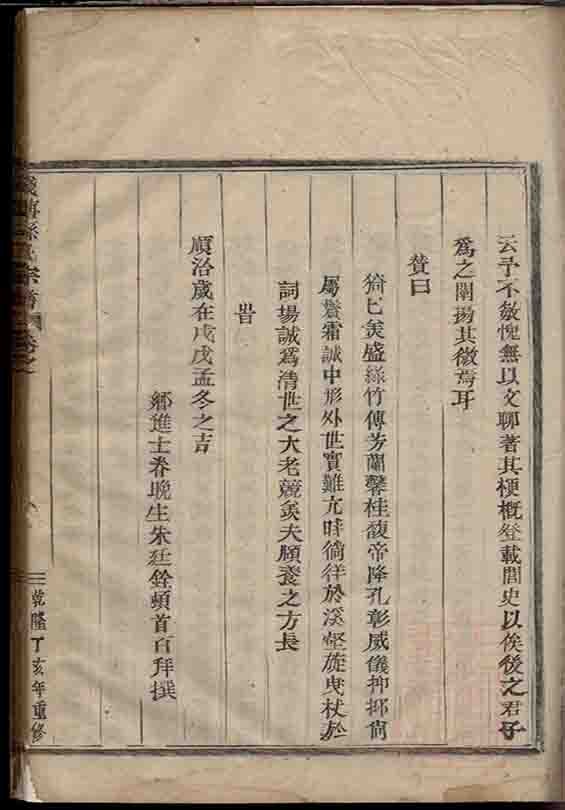 云予不敏愧無以文聊著其梗概登載閭史以俟後之君子
為之闡揚其徽焉耳
贊曰
猗匕羙盛絲竹傳芳蘭馨桂馥帝降孔彰威儀抑抑尚
屬鬢霜誠中形外世實難亢時徜徉於溪壑旋曳杖於
詞場誠為清世之大老競羙夫頤養之方長
旹
順治歲在戊戌孟冬之吉
鄉進士眷晚生朱廷銓頓首百拜撰
宗譜
乾隆丁亥年重修